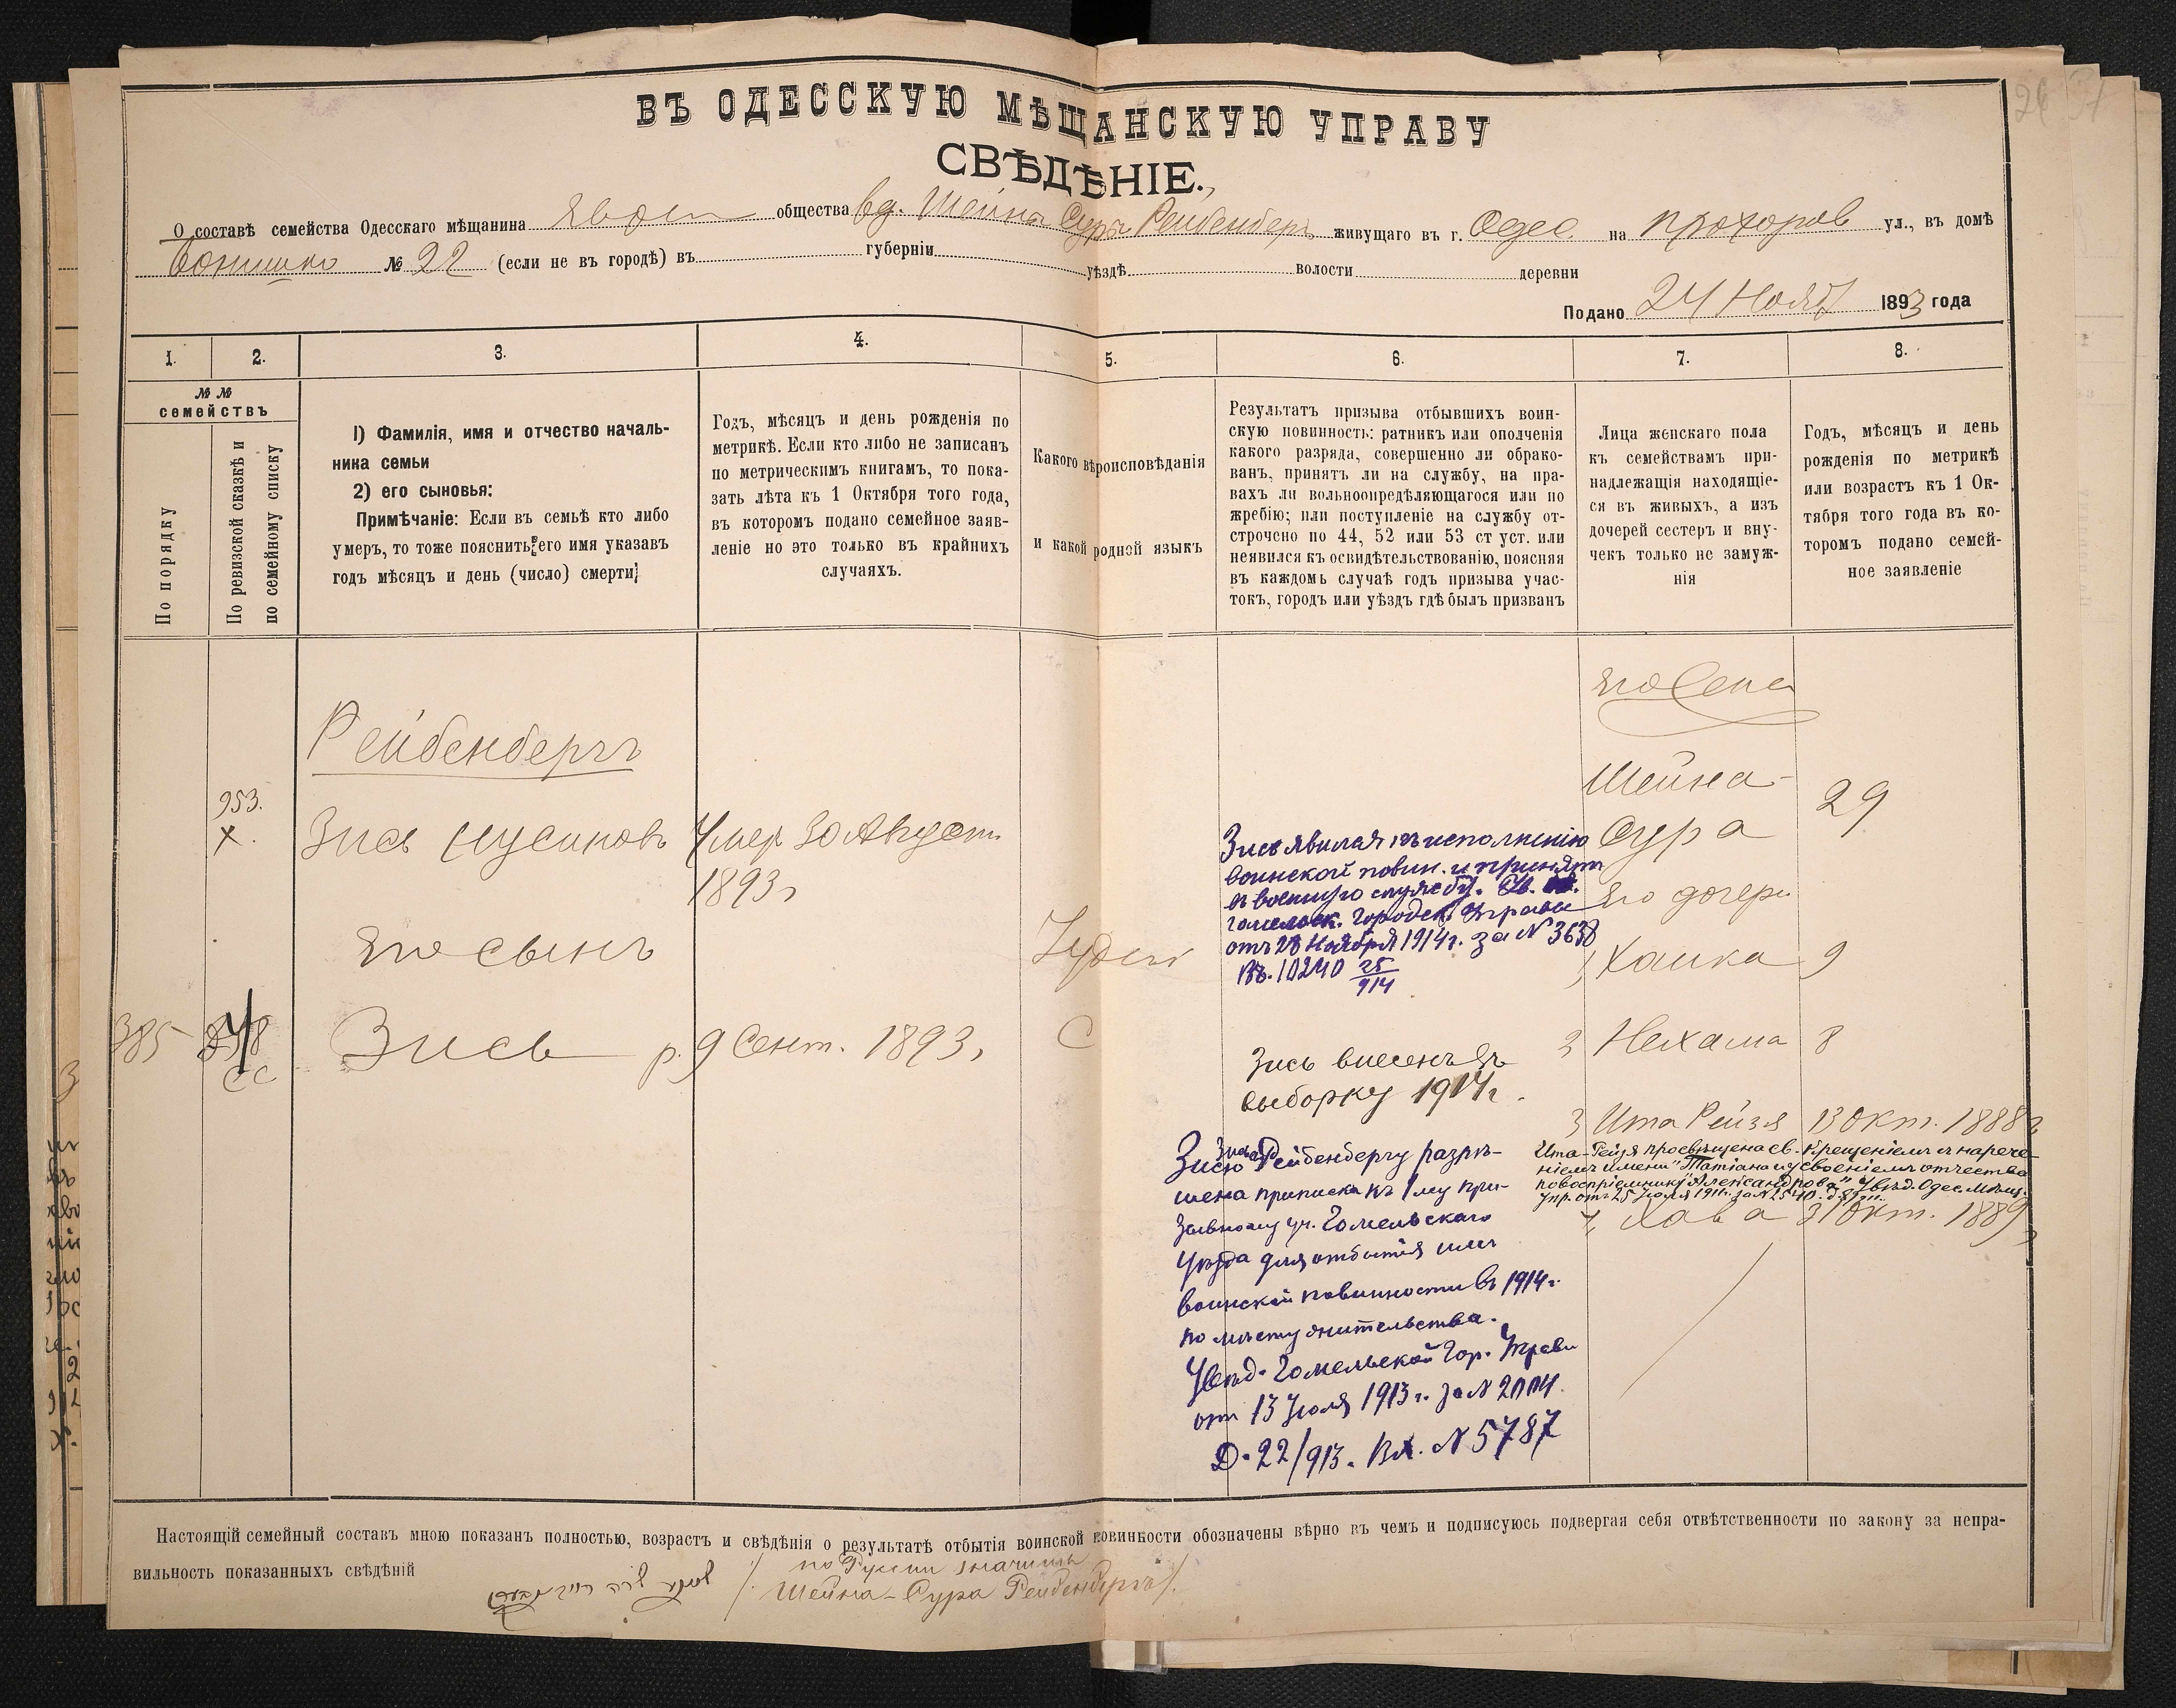 ВЪ ОДЕССКУЮ МѢЩАНСКУЮ УПРАВУ
СВѢДѢНІЕ.
О составѣ семейства Одесскаго мѣщанина общества вд. Шейна Сура Рейбенбергъ живущаго въ г. Одес на Прохоров ул., въ домѣ
№ 22 (если не въ городѣ) въ губерніи уѣздѣ волости деревни
Подано 24 Нояб 1893 года
1. 2. 3. 4. 5. 6. 7. 8.
№ № семействъ
По порядку
По ревизской сказкѣ и
по семейному списку
1) Фамилія, имя и отчество началь-
ника семьи
2) его сыновья:
Примѣчаніе: Если въ семьѣ кто либо
умеръ, то тоже пояснить его имя указавъ
годъ мѣсяцъ и день (число) смерти;
Годъ, мѣсяцъ и день рожденія по
метрикѣ. Если кто либо не записанъ
по метрическимъ книгамъ, то пока-
зать лѣта къ 1 Октября того года,
въ которомъ подано семейное заяв-
леніе но это только въ крайнихъ
случаяхъ.
Какого вѣроисповѣданія
и какой родной языкъ
Результатъ призыва отбывшихъ воин-
скую повинность: ратникъ или ополченія
какого разряда, совершенно ли обрако-
ванъ, принятъ ли на службу, на пра-
вахъ ли вольноопредѣляющагося или по
жребію; или поступленіе на службу от-
строчено по 44, 52 или 53 ст уст. или
неявился къ освидѣтельствованію, поясняя
въ каждомъ случаѣ годъ призыва учас-
токъ, городъ или уѣздъ гдѣ былъ призванъ
Лица женскаго пола
къ семействамъ при-
надлежащія находящіе-
ся въ живыхъ, а изъ
дочерей сестеръ и вну-
чекъ только не замуж-
нія
Годъ, мѣсяцъ и день
рожденія по метрикѣ
или возрастъ къ 1 Ок-
тября того года въ ко-
торомъ подано семей-
ное заявленіе
Рейбенбергъ
953.
х.
Зись Нусиновъ
Умер 30 Август
1893 г
Его сынъ
385
Зись р. 9 Сент. 1893,
Іудей
Зись явился къ исполненію
воинской повин. и принятъ
въ военную службу. Ув.
гомельск. Городск. Управы
отъ 28 Ноября 1914 г. за № 3638
Вх. 10240 25/914
Зись внесенъ въ
выборку 1914 г.
Зисю Рейбенбергу разрѣ-
шена приписка къ 1 му при-
зывному уч. Гомельскаго
Уѣзда для отбытія имъ
воинской повинности въ 1914 г.
по мѣсту жительства.
Увѣд. Гомельской Гор. Управы
от 13 Іюля 1913 г. за №
Д. 22/913. Вх. № 5787
Его жена
Шейна-
Сура 29
Его дочери
1, Хаика 9
2 Нехама 8
3 Ита Рейзя 13 Окт. 1888 г
Ита-Рейзя просвѣщена св. Крещеніемъ съ нарече-
ніемъ имени "Татіана и усвоеніемъ отчества
по воспріемнику "Александрова" Увѣд. Одес. Мѣщ.
Упр. отъ 25 Іюля 1911 г. за №
4, Хава 31 Окт. 1889
Настоящій семейный составъ мною показанъ полностью, возрастъ и свѣдѣнія о результатѣ отбытія воинской повинности обозначены вѣрно въ чемъ и подписуюсь подвергая себя отвѣтственности по закону за непра-
вильность показанныхъ свѣдѣній
по Руски значитъ
Шейна-Сура Рейбенбергъ